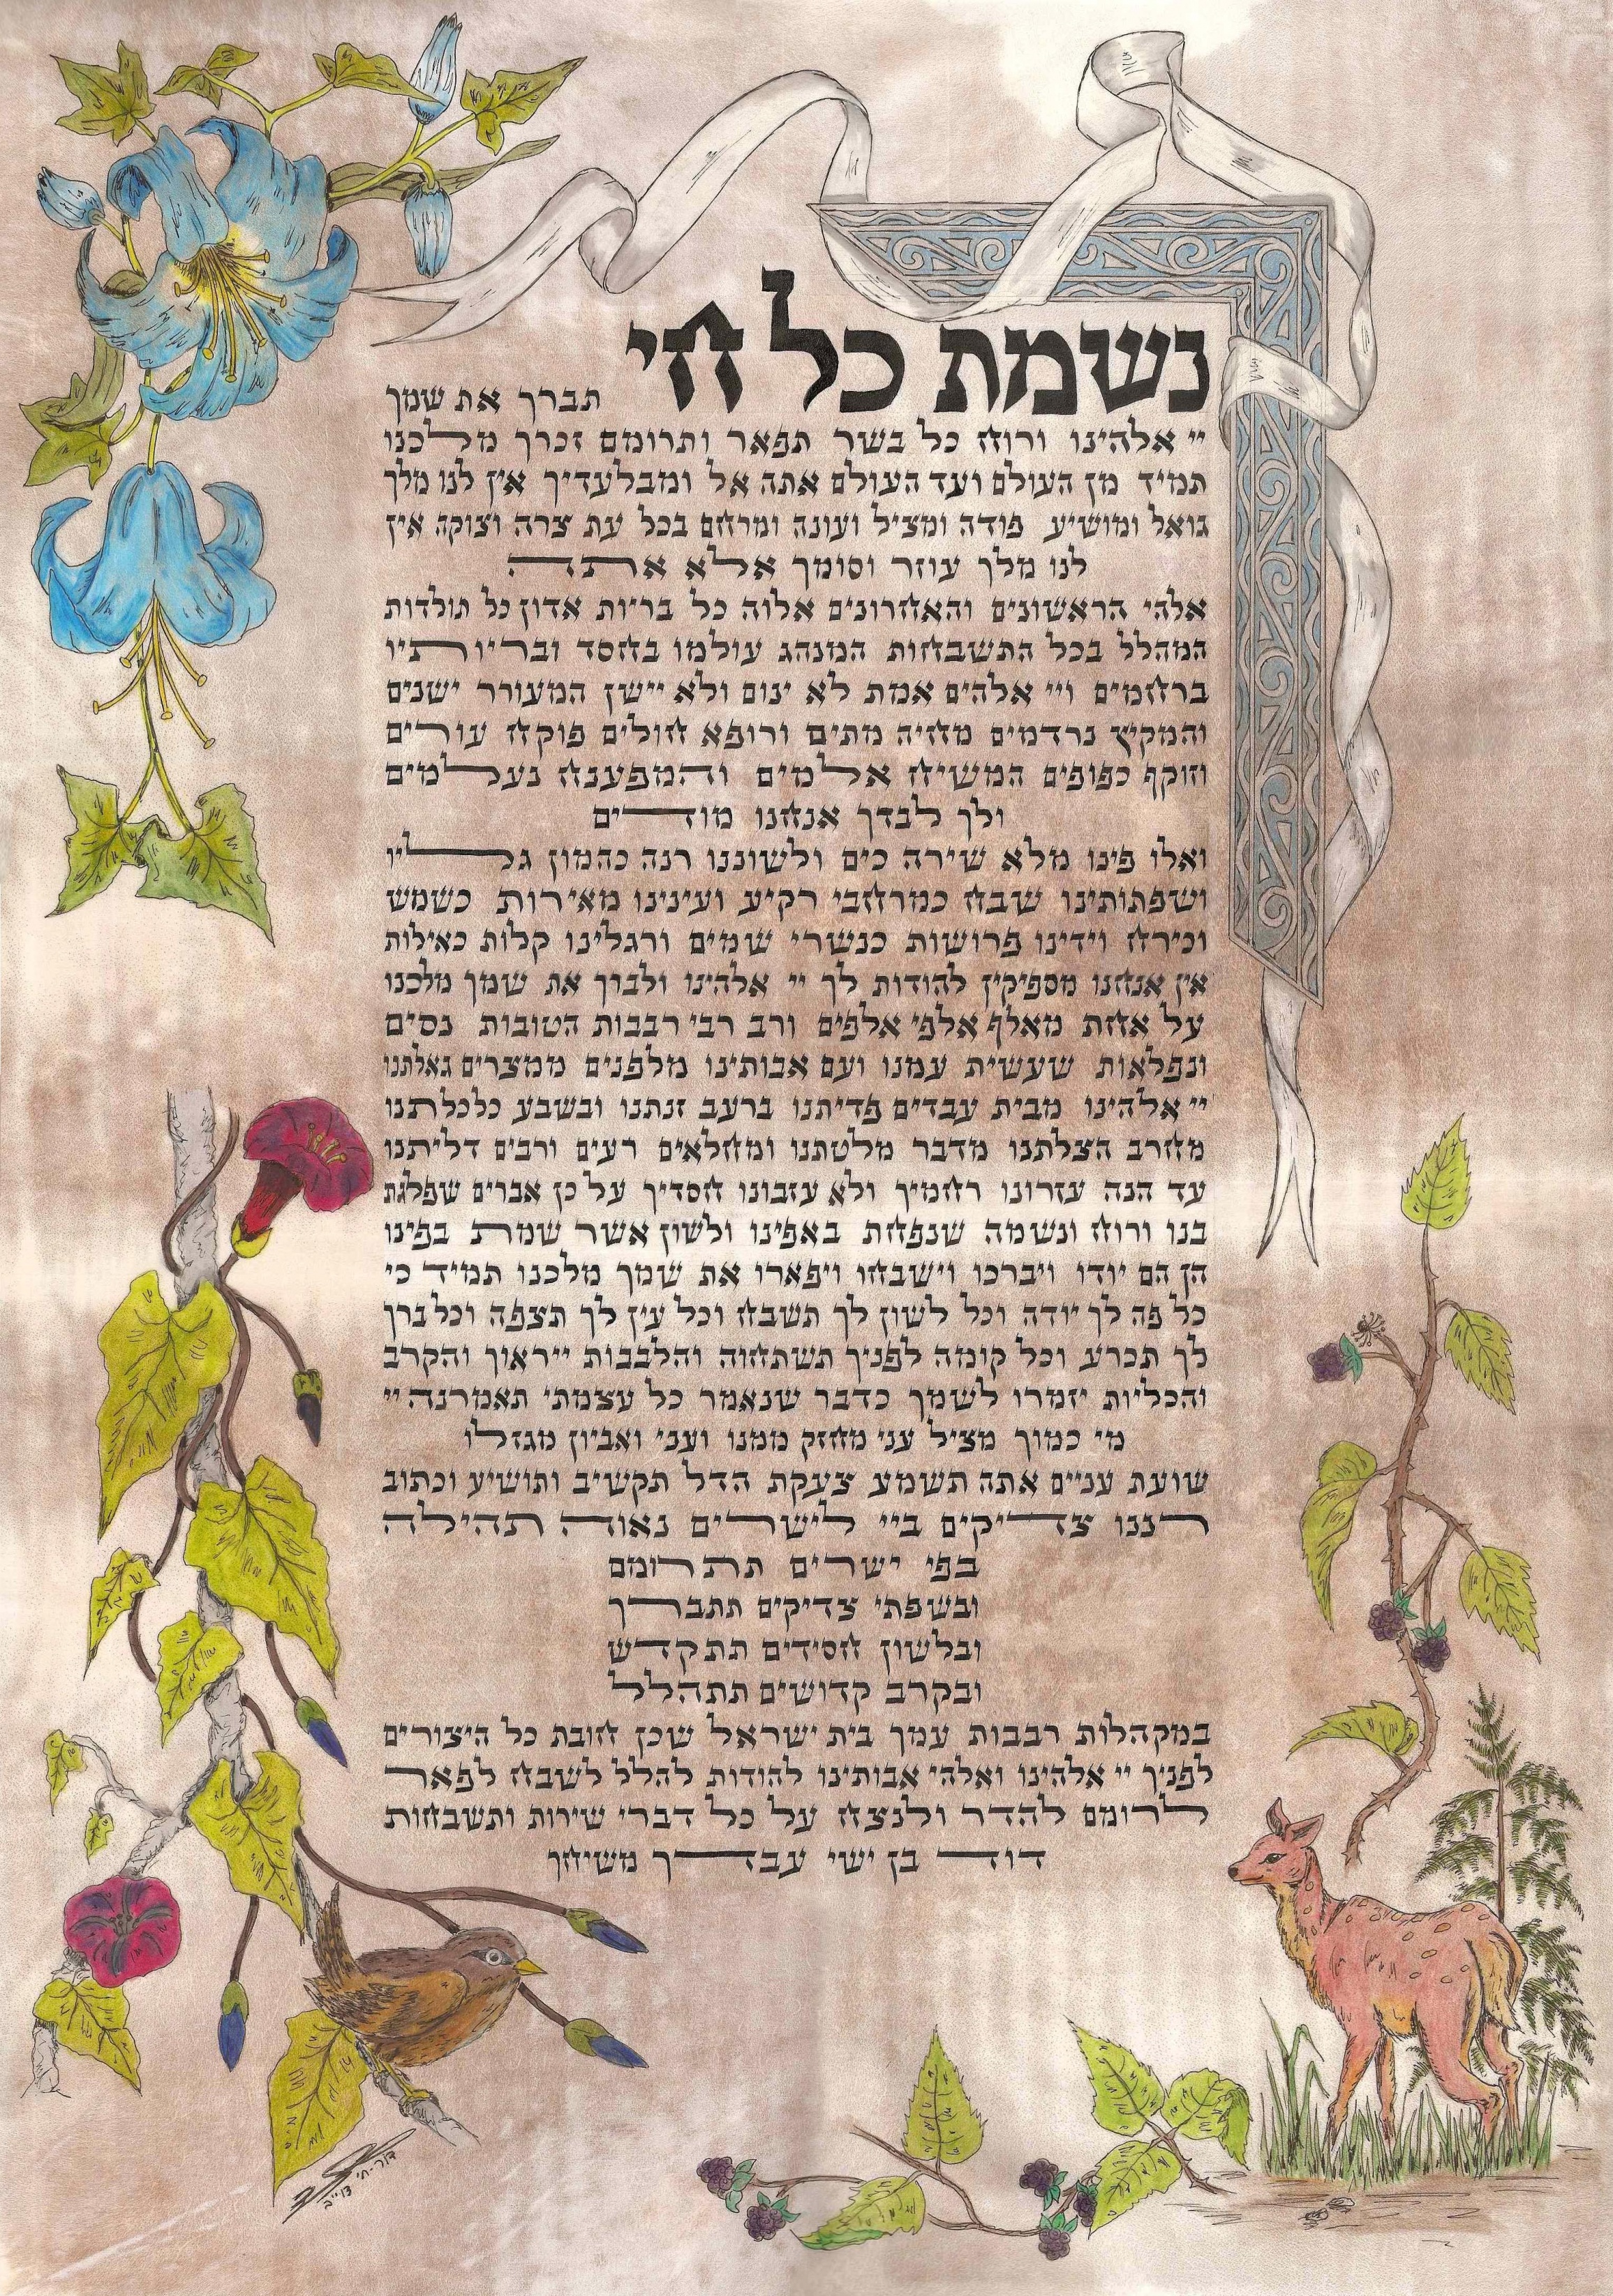 נשמת כל חי תברך את שמך
יי אלהינו ורוח כל בשר תפאר ותרומם זכרך מלכנו
תמיד מן העולם ועד העולם אתה אל ומבלעדיך אין לנו מלך
גואל ומושיע פודה ומציל ועונה ומרחם בכל עת צרה וצוקה אין
לנו מלך עוזר וסומך אלא אתה
אלהי הראשונים והאחרונים אלוה כל בריות אדון כל תולדות
המהלל בכל התשבחות המנהג עולמו בחסד ובריותיו
ברחמים ויי אלהים אמת לא ינום ולא יישן המעורר ישנים
והמקיץ נרדמים מחיה מתים ורופא חולים פוקח עורים
וזוקף כפופים המשיח אלמים והמפענח נעלמים
ולך לבדך אנחנו מודים
ואלו פינו מלא שירה כים ולשוננו רנה כהמון גליו
ושפתותינו שבח כמרחבי רקיע ועינינו מאירות כשמש
וכירח וידינו פרושות כנשרי שמים ורגלינו קלות כאילות
אין אנחנו מספיקין להודות לך יי אלהינו ולברך את שמך מלכנו
על אחת מאלף אלפי אלפים ורב רבי רבבות הטובות נסים
ונפלאות שעשית עמנו ועם אבותינו מלפנים ממצרים גאלתנו
יי אלהינו מבית עבדים פדיתנו ברעב זנתנו ובשבע כלכלתנו
מחרב הצלתנו מדבר מלטתנו ומחלאים רעים ורבים דליתנו
עד הנה עזרונו רחמיך ולא עזבונו חסדיך על כן אברים שפלגת
בנו ורוח ונשמה שנפחת באפינו ולשון אשר שמת בפינו
הן הם יודו ויברכו וישבחו ויפארו את שמך מלכנו תמיד כי
כל פה לך יודה וכל לשון לך תשבח וכל עין לך תצפה וכל ברך
לך תכרע וכל קומה לפניך תשתחוה והלבבות ייראוך והקרב
והכליות יזמרו לשמך כדבר שנאמר כל עצמתי תאמרנה יי
מי כמוך מציל עני מחזק ממנו ועני ואביון מגזלו
שועת עניים אתה תשמע צעקת הדל תקשיב ותושיע וכתוב
רננו צדיקים ביי לישרים נאוה תהילה
בפי ישרים תתרומם
ובשפתי צדיקים תתברך
ובלשון חסידים תתקדש
ובקרב קדושים תתהלל
במקהלות רבבות עמך בית ישראל שכן חובת כל היצורים
לפניך יי אלהינו ואלהי אבותינו להודות להלל לשבח לפאר
לרומם להדר ולנצח על כל דברי שירות ותשבחות
דוד בן ישי עבדך משיחך